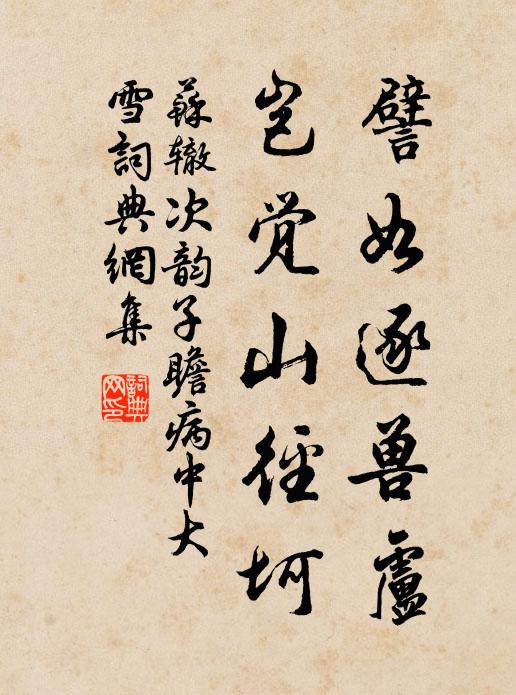 譬如逐兽盧
岂觉山径坷
蘇辙次韵子瞻病中大
雪詞典網集
詞典网印